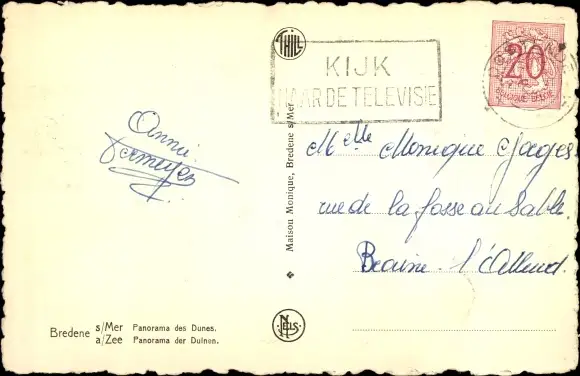 THILL
KIJK
NAAR DE TELEVISIE
20
BELGIQUE-BELGIE
Annie
Maison Monique, Bredene s/Mer
Melle Monique Jages
rue de la fosse au sable
Braine-l'Alleud.
NELS
Bredene s/Mer Panorama des Dunes.
a/Zee Panorama der Duinen.